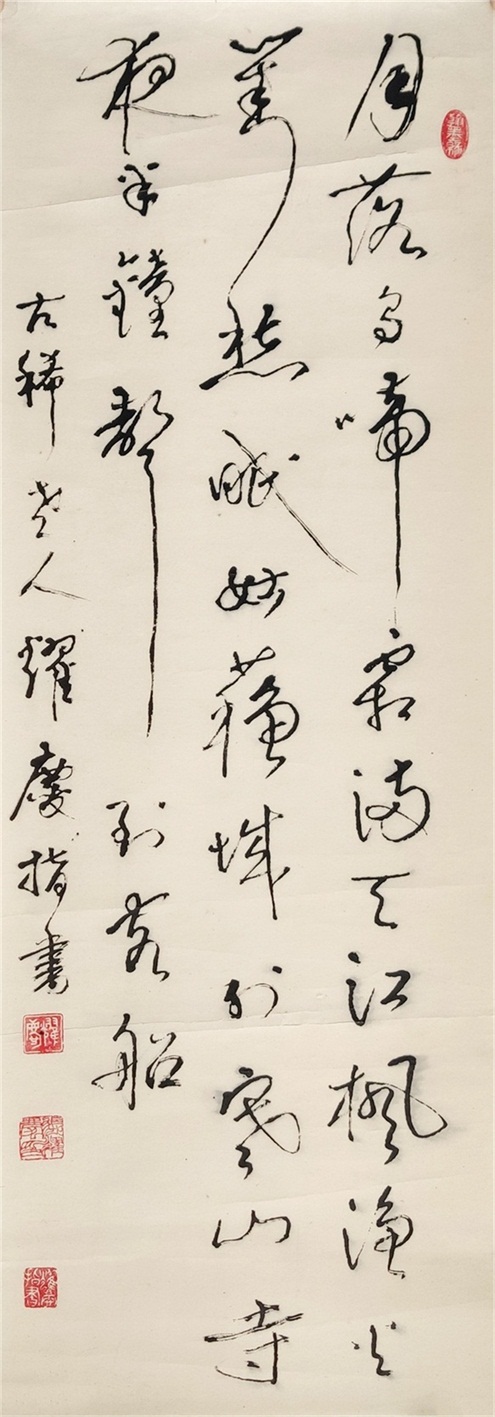 月落烏啼霜滿天江楓漁火
對愁眠姑蘇城外寒山寺
夜半鐘聲到客船
古稀老人耀慶指書
耀慶